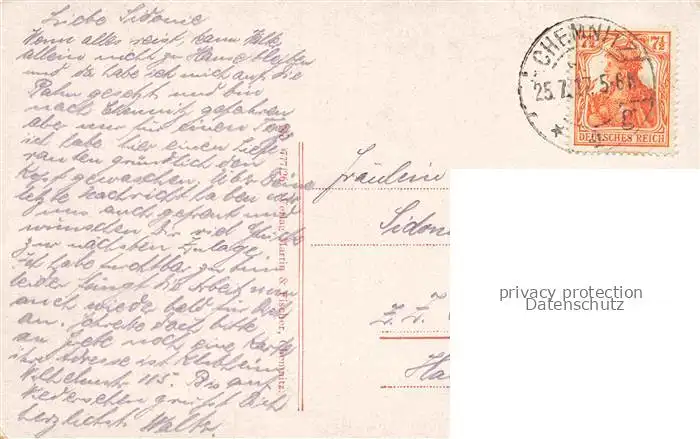 Liebe Sidonie
Wenn alles reist, kann Walt
allein nicht zu Hause bleiben
und da habe ich mich auf die
Bahn gesetzt und bin
nach Chemnitz gefahren
aber nur für einen Tag
ich habe hier einen Liefe-
ranten gründlich den
Kopf gewaschen. Über Deine
letzte Nachricht haben wir
uns auch gefreut und
wünschen Dir viel Glück
zur nächsten Zulage.
Ich habe furchtbar zu tun
leider fängt die Arbeit nun
auch wieder bald für Dich
an. Schreibe doch bitte
an Grete noch eine Karte
ihre Adresse ist
Wilhelmstr 115. Bis auf
Wiedersehen grüßt Dich
herzlichst Walter
Martin &
Chemnitz.
CHEMNITZ
25.7.17. 5-6N
7½ 7½
DEUTSCHES REICH
Fräulein
Sidon
z. Z.
Ha
privacy protection
Datenschutz